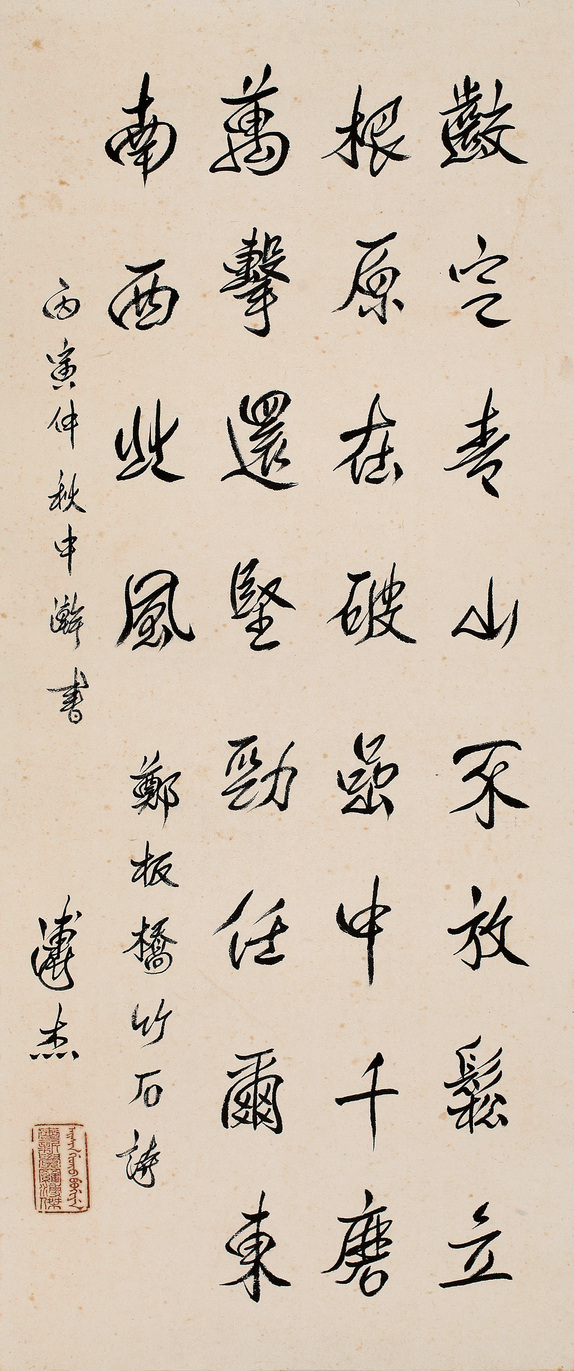 齩定青山不放鬆立
根原在破嵒中千磨
萬擊還堅勁任爾東
南西北風 鄭板橋竹石詩
丙寅仲秋中澣書 溥杰
愛新覺羅溥傑